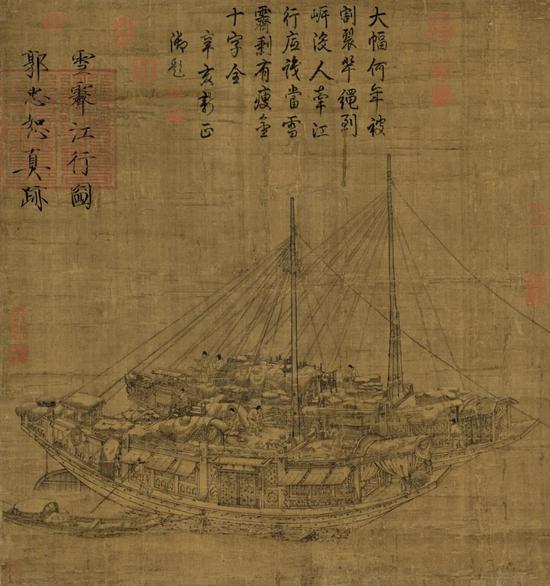 大幅何年被
割裂牽繩到
岸没人牽江
行應當雪
霽剩有瘦金
十字全
辛亥新正
御題
雪霽江行圖
郭忠恕真跡